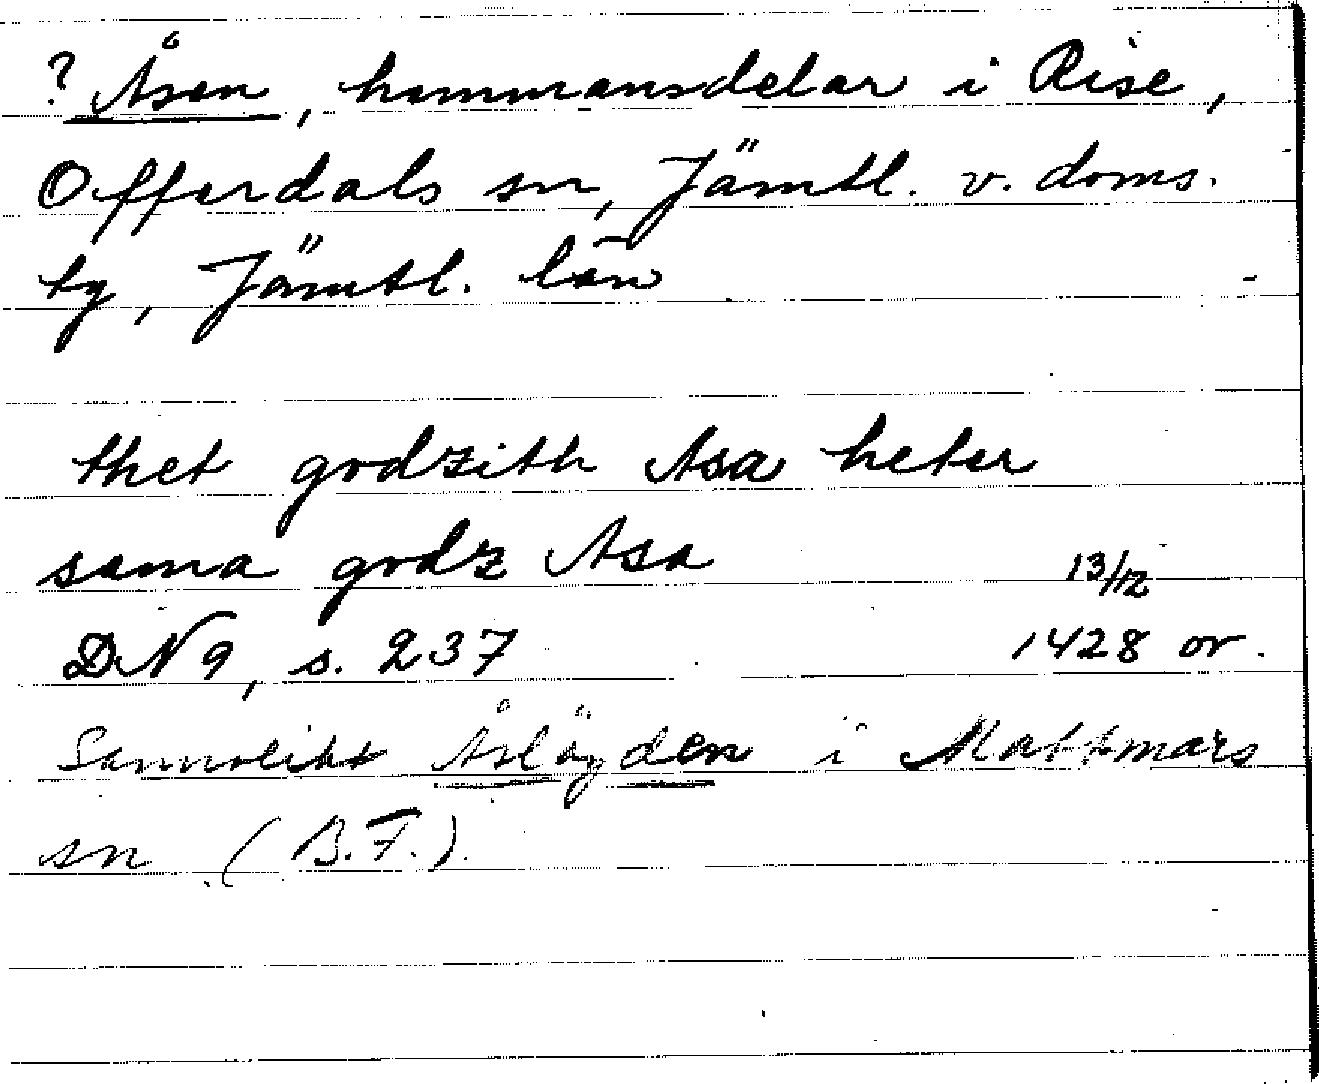 ? Åsen, hemmansdelar i Rise,
Offerdals sn, Jämtl. v. doms.
tg, Jämtl. län
thet godzith Asa heter
sama godz Asa
13/12
DN 9, s. 237 1428 or.
Sannolikt Åslögden i Mattmars
sn (B.F.).